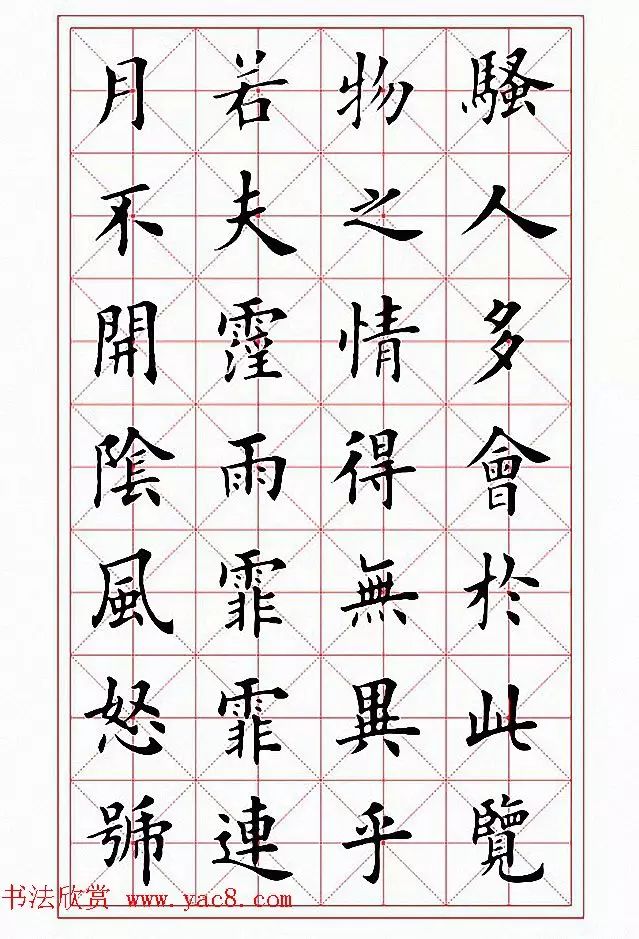 騷人多會於此覽
物之情得無異乎
若夫霪雨霏霏連
月不開陰風怒號
书法欣赏 www.yac8.com